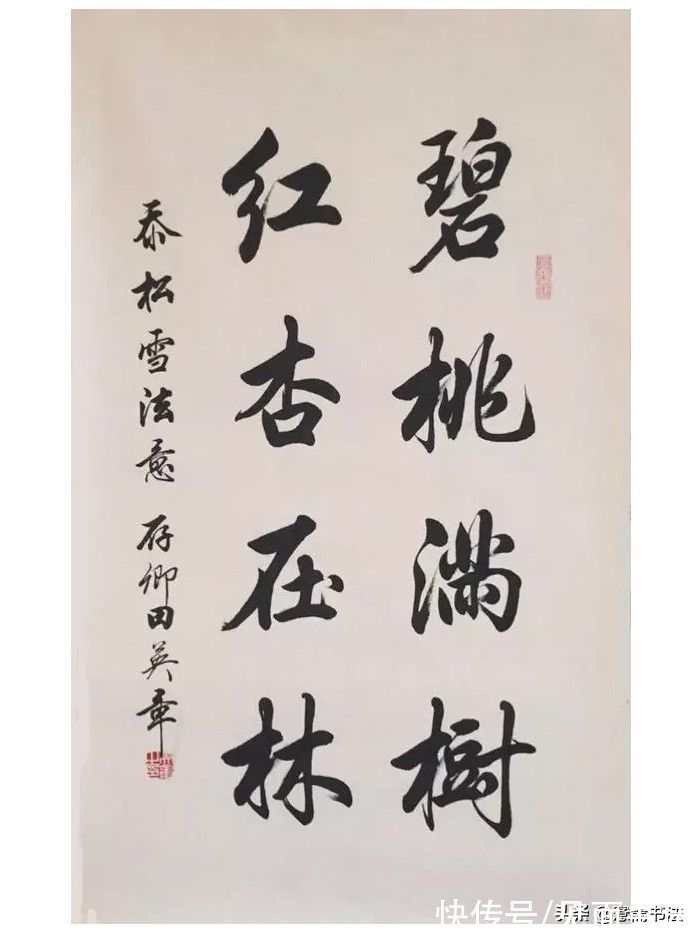 碧桃滿樹
紅杏在林
叅松雪法意 存卿田英章
快传号/